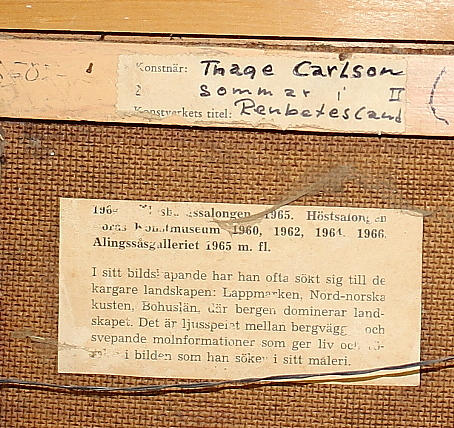 Konstnär: Thage Carlson
2 sommar i II
Konstverkets titel: Renbetesland
1965. Höstsalongen
1960, 1962, 1964. 1966.
Alingssåsgalleriet 1965 m. fl.
I sitt bildskapande har han ofta sökt sig till de
kargare landskapen: Lappmarken, Nord-norska
kusten, Bohuslän, där bergen dominerar land-
skapet. Det är ljusspelet mellan bergvägg och
svepande molnformationer som ger liv och
i bilden som han söker i sitt måleri.